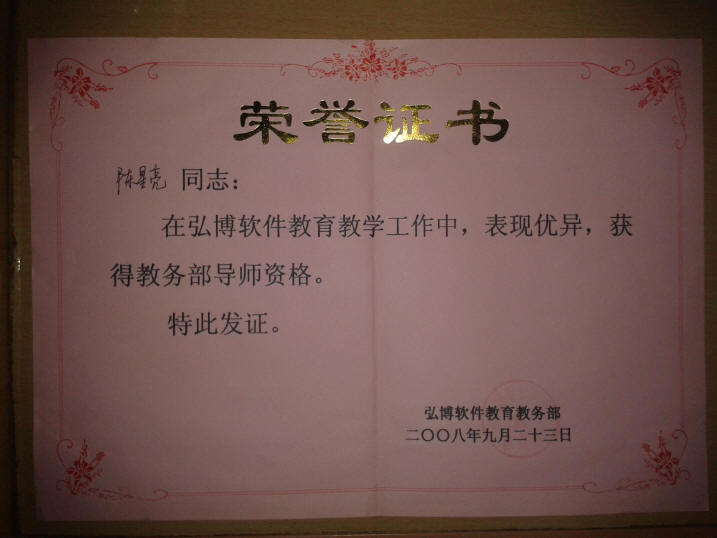 荣誉证书
陈星亮 同志：
在弘博软件教育教学工作中，表现优异，获
得教务部导师资格。
特此发证。
弘博软件教育教务部
二〇〇八年九月二十三日